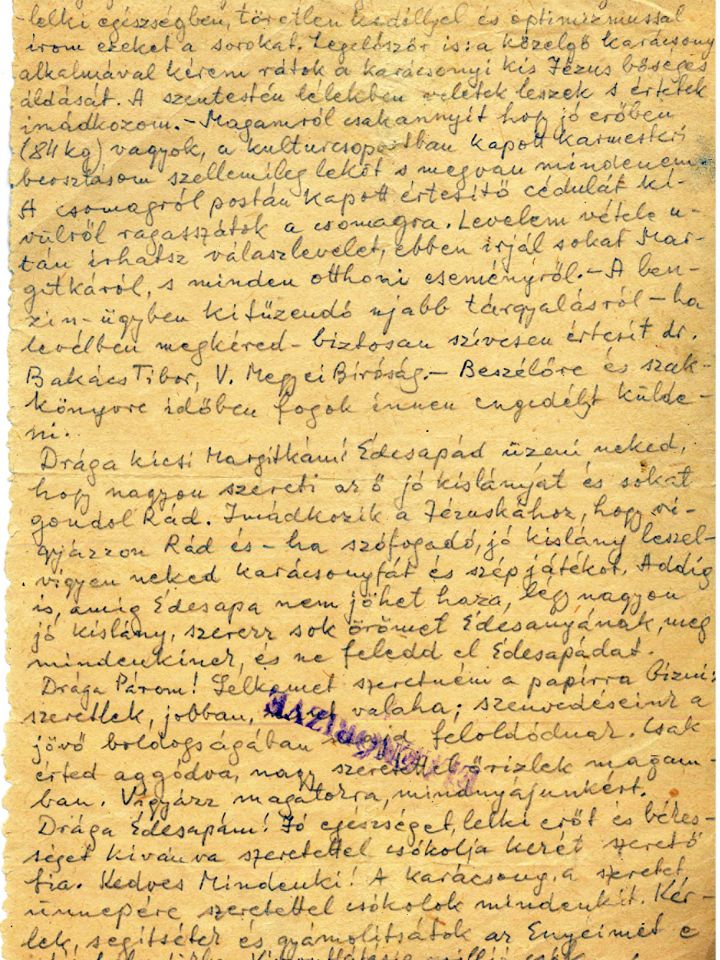 lelki egészségben, töretlen kedéllyel és optimizmussal
irom ezeket a sorokat. Legelőször is: a közelgő karácsony
alkalmával kérem rátok a karácsonyi kis Jézus bőséges
áldását. A szentestén lélekben veletek leszek s értetek
imádkozom. – Magamról csak annyit hogy jó erőben
(84 kg) vagyok, a kulturcsoportban kapott karmesteri
beosztásom szellemileg leköt s megvan mindenem.
A csomagról postán kapott értesitő cédulát ki-
vülről ragasszátok a csomagra. Levelem vétele u-
tán irhatsz válaszlevelet, ebben irjál sokat Mar-
gitkáról, s minden otthoni eseményről. – A ben-
zin-ügyben kitűzendő ujabb tárgyalásról – ha
levélben megkéred – biztosan szívesen értesit dr.
Bakács Tibor, V. Megyei Biróság. – Beszélőre és szak-
könyvre időben fogok innen engedélyt külde-
ni.
Drága kicsi Margitkám! Édesapád üzeni neked,
hogy nagyon szereti az ő jó kislányát és sokat
gondol Rád. Imádkozik a Jézuskához, hogy vi-
gyázzon Rád és – ha szófogadó, jó kislány leszel –
vigyen neked karácsonyfát és szép játékot. Addig
is, amig Édesapa nem jöhet haza, légy nagyon
jó kislány, szerezz sok örömet Édesanyának, meg
mindenkinek, és ne feledd el Édesapádat.
Drága Párom! Lelkemet szeretném a papirra bizni:
szeretlek, jobban, valaha; szenvedéseink a
jövő boldogságában feloldódnak. Csak
érted aggódva, nagy szeretettel őrizlek magam-
ban. Vigyázz magatokra, mindnyájunkért.
Drága Édesapám! Jó egészséget, lelki erőt és békes-
séget kivánva szeretettel csókolja kezét szerető
fia. Kedves Mindenki! A karácsony, a szeretet
ünnepére szeretettel csókolok mindenkit. Kér-
lek, segitsétek és gyámolitsátok az Enyéimet e